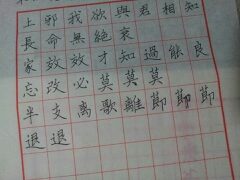 上邪我欲與君相知
長命無絕衰
家效效才知過能良
忘改必莫莫莫
半支离歌離節節節
退退